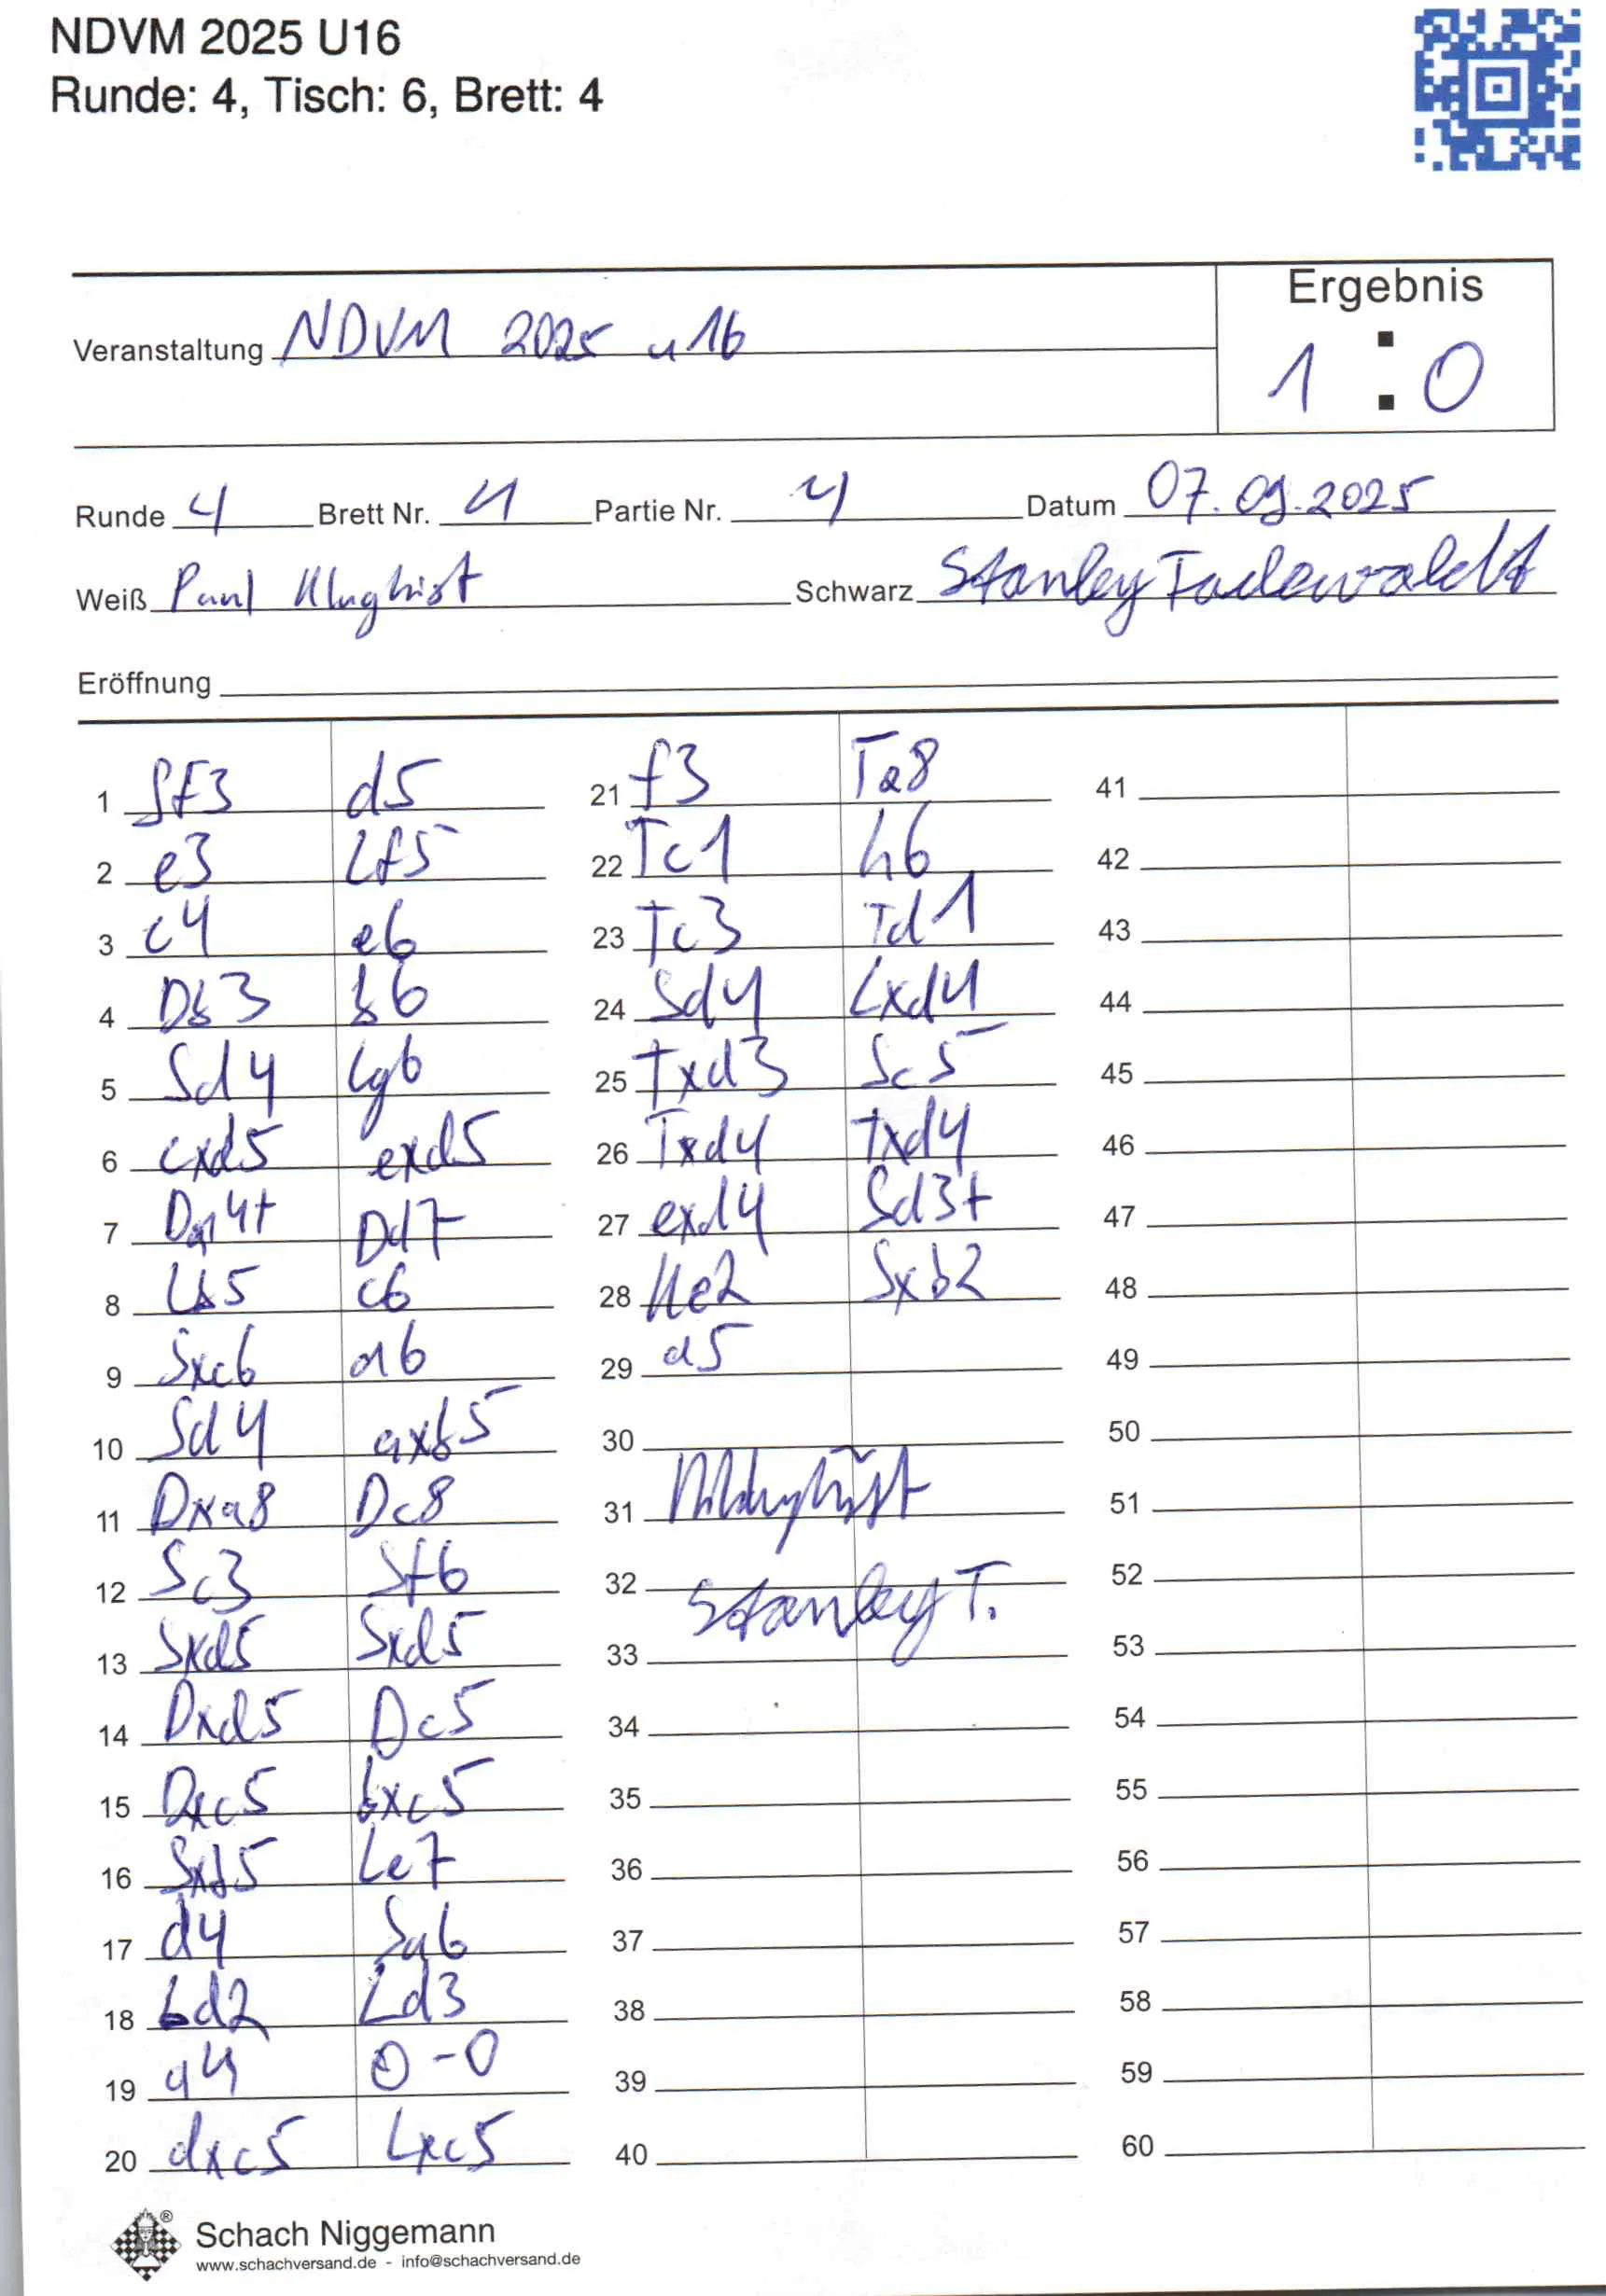 NDVM 2025 U16
Runde: 4, Tisch: 6, Brett: 4
Ergebnis
Veranstaltung NDVM 2025 u16
1 : 0
Runde 4 Brett Nr. 4 Partie Nr. 4 Datum 07.09.2025
Weiß Paul Klughist Schwarz Stanley
Eröffnung
1 Sf3 d5
2 e3 Lf5
3 c4 e6
4 Db3 b6
5 Sd4 Lg6
6 cxd5 exd5
7 Da4+ Dd7
8 Lb5 c6
9 Sxc6 a6
10 Sd4 axb5
11 Dxa8 Dc8
12 Sc3 Sf6
13 Sxd5 Sxd5
14 Dxd5 Dc5
15 Dxc5 bxc5
16 Sxb5 Le7
17 d4 Sa6
18 Ld2 Ld3
19 a4 0-0
20 dxc5 Lxc5
21 f3 Ta8
22 Tc1 h6
23 Tc3 Td1
24 Sd4 Lxd4
25 Txd3 Sc5
26 Txd4 Txd4
27 exd4 Sd3+
28 Ke2 Sxb2
29 a5
30
31
32 Stanley T.
33
34
35
36
37
38
39
40
41
42
43
44
45
46
47
48
49
50
51
52
53
54
55
56
57
58
59
60
Schach Niggemann
www.schachversand.de - info@schachversand.de